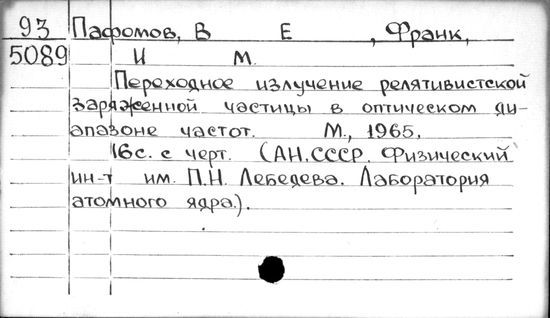 93 Пафомов, В Е , Франк,
5089 И М.
Переходное излучение релятивистской
заряженной частицы в оптическом ди-
апазоне частот. М., 1965.
16с. с черт. (АН.СССР. Физический
ин-т им. П.Н. Лебедева. Лаборатория
атомного ядра.).